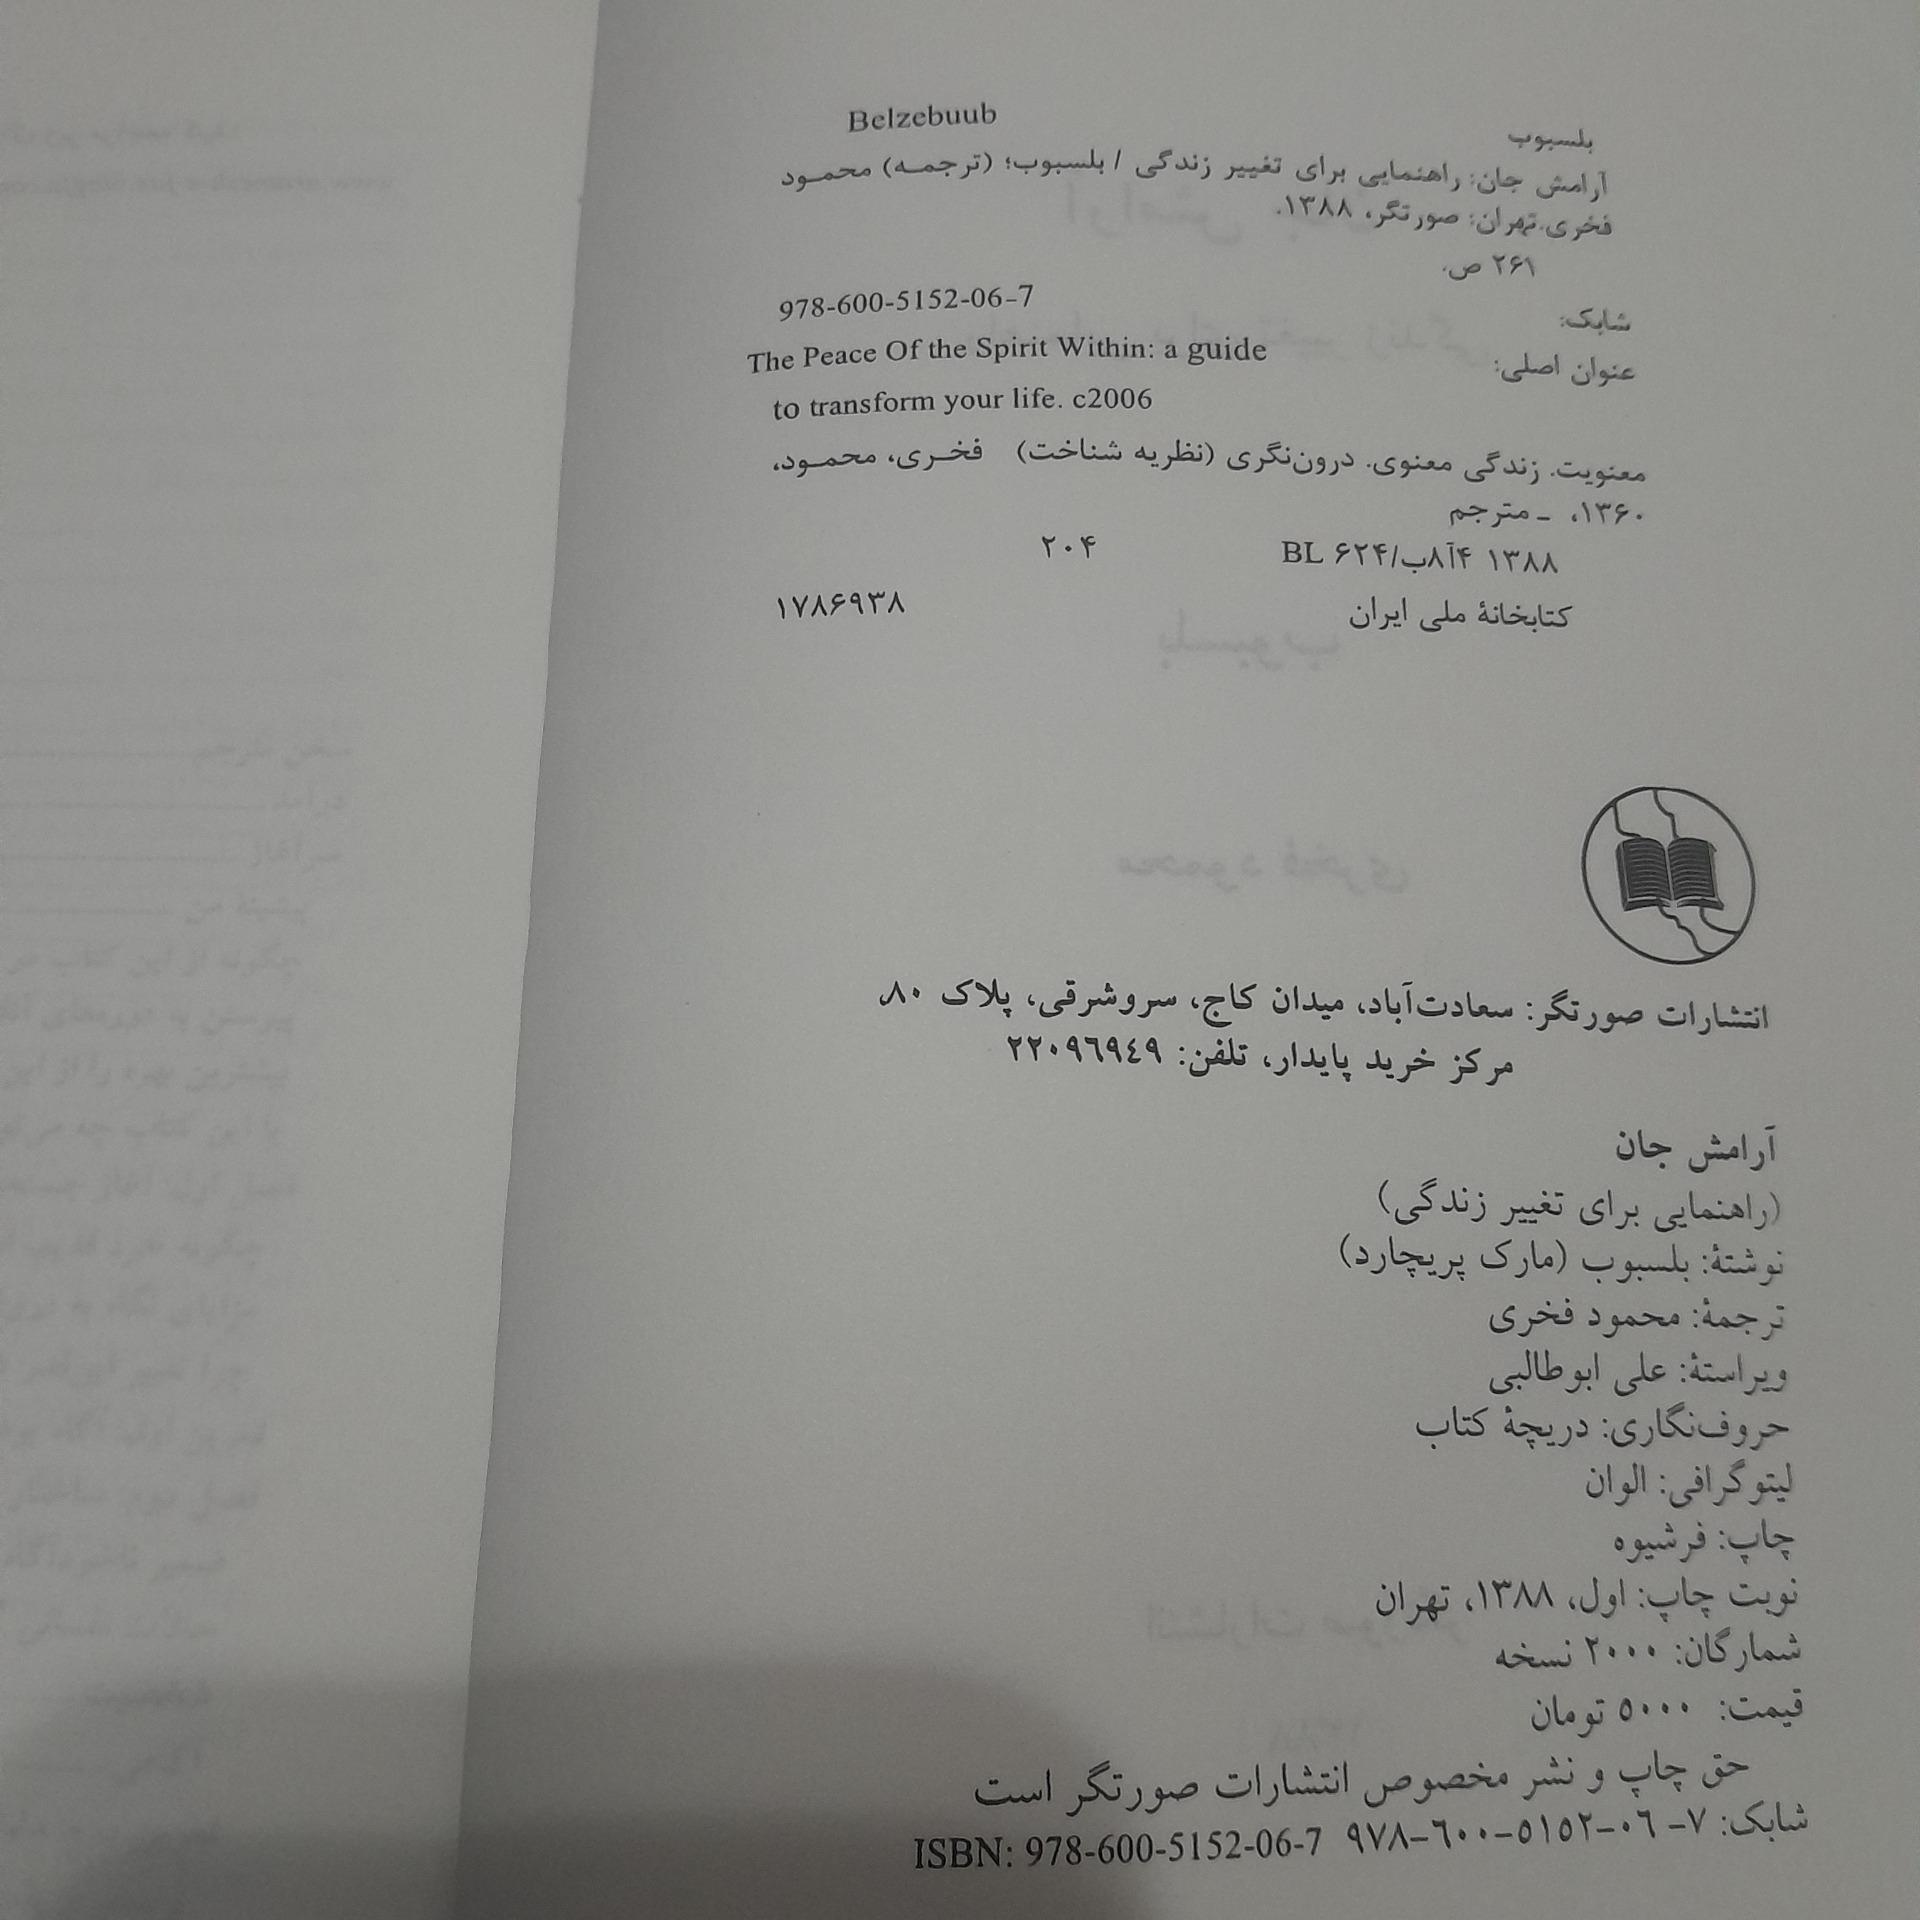 Belzebuub
بلسبوب
آرامش جان: راهنمایی برای تغییر زندگی / بلسبوب؛ (ترجمـه) محمـود
فخری.تهران: صورتگر، ۱۳۸۸.
۲۶۱ ص.
شابک: 978-600-5152-06-7
عنوان اصلی: The Peace Of the Spirit Within: a guide
to transform your life. c2006
معنویت. زندگی معنوی. درون‌نگری (نظریه شناخت) فخـری، محمـود،
۱۳۶۰، ـ مترجم
BL ۶۲۴/ب۸آ۴ ۱۳۸۸ ۲۰۴
کتابخانهٔ ملی ایران ۱۷۸۶۹۳۸
انتشارات صورتگر: سعادت‌آباد، میدان کاج، سروشرقی، پلاک ۸۰،
مرکز خرید پایدار، تلفن: ۲۲۰۹٦۹٤۹
آرامش جان
(راهنمایی برای تغییر زندگی)
نوشتهٔ: بلسبوب (مارک پریچارد)
ترجمهٔ: محمود فخری
ویراستهٔ: علی ابوطالبی
حروف‌نگاری: دریچهٔ کتاب
لیتوگرافی: الوان
چاپ: فرشیوه
نوبت چاپ: اول، ۱۳۸۸، تهران
شمارگان: ۲۰۰۰ نسخه
قیمت: ۵۰۰۰ تومان
حق چاپ و نشر مخصوص انتشارات صورتگر است
شابک: ۷-۰٦-۵۱۵۲-٦۰۰-۹۷۸ ISBN: 978-600-5152-06-7